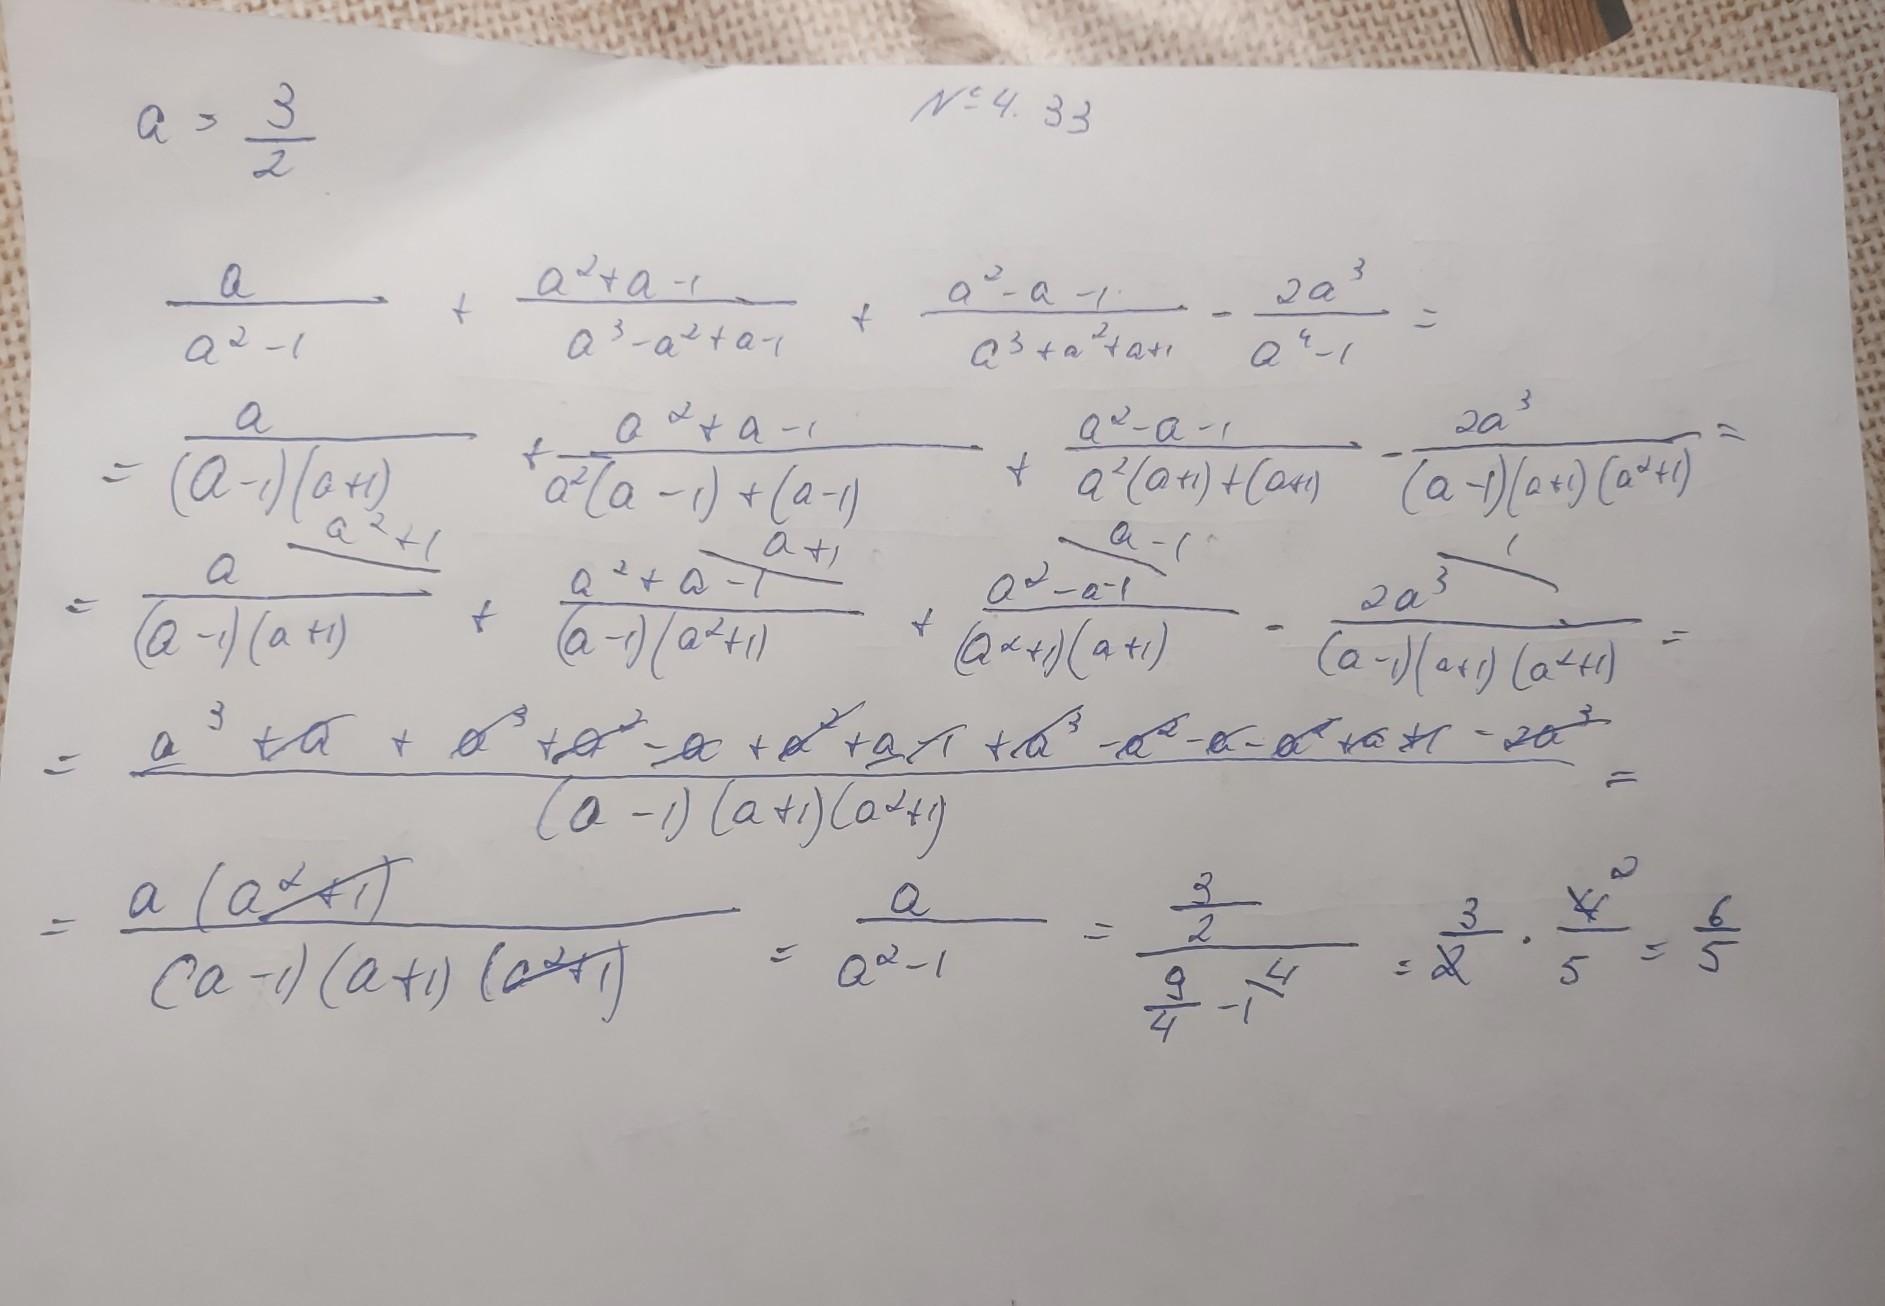 a = 3/2
№ 4. 33
a/(a²-1) + (a²+a-1)/(a³-a²+a-1) + (a²-a-1)/(a³+a²+a+1) - 2a³/(a⁴-1) =
= a/((a-1)(a+1)) + (a²+a-1)/(a²(a-1)+(a-1)) + (a²-a-1)/(a²(a+1)+(a+1)) - 2a³/((a-1)(a+1)(a²+1)) =
a²+1 a+1 a-1 1
= a/((a-1)(a+1)) + (a²+a-1)/((a-1)(a²+1)) + (a²-a-1)/((a²+1)(a+1)) - 2a³/((a-1)(a+1)(a²+1)) =
= (a³+a+a³+a²-a+a²+a-1+a³-a²-a-a²+a+1-2a³)/((a-1)(a+1)(a²+1)) =
= a(a²+1)/((a-1)(a+1)(a²+1)) = a/(a²-1) = (3/2)/(9/4 - 1 \ 4) = 3/2 · 4²/5 = 6/5